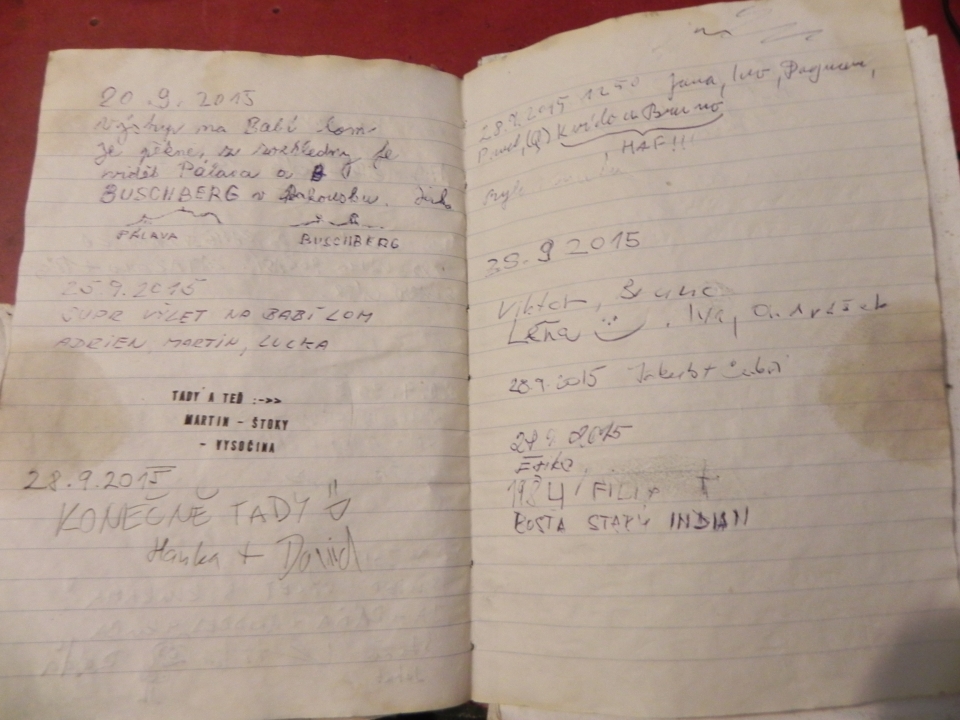 20.9.2015
Výstup na Babí lom
je pěkné, z rozhledny je
vidět Pálava a
BUSCHBERG v Rakousku.
PÁLAVA
BUSCHBERG
25.9.2015
SUPR VÝLET NA BABÍ LOM
ADRIEN, MARTIN, LUCKA
TADY A TEĎ :->>
MARTIN - ŠTOKY
- VYSOČINA
28.9.2015
KONEČNĚ TADY
Hanka + David
28.9.2015 1250 Jana, Ivo, Dagmar,
Pavel, Kvído a Bruno
HAF!!!
9 2015
Viktor,
Léňa , Iva,
28.9.2015 Jakub +
2015
1984 FILIP
KOSŤA STARÝ INDIÁN